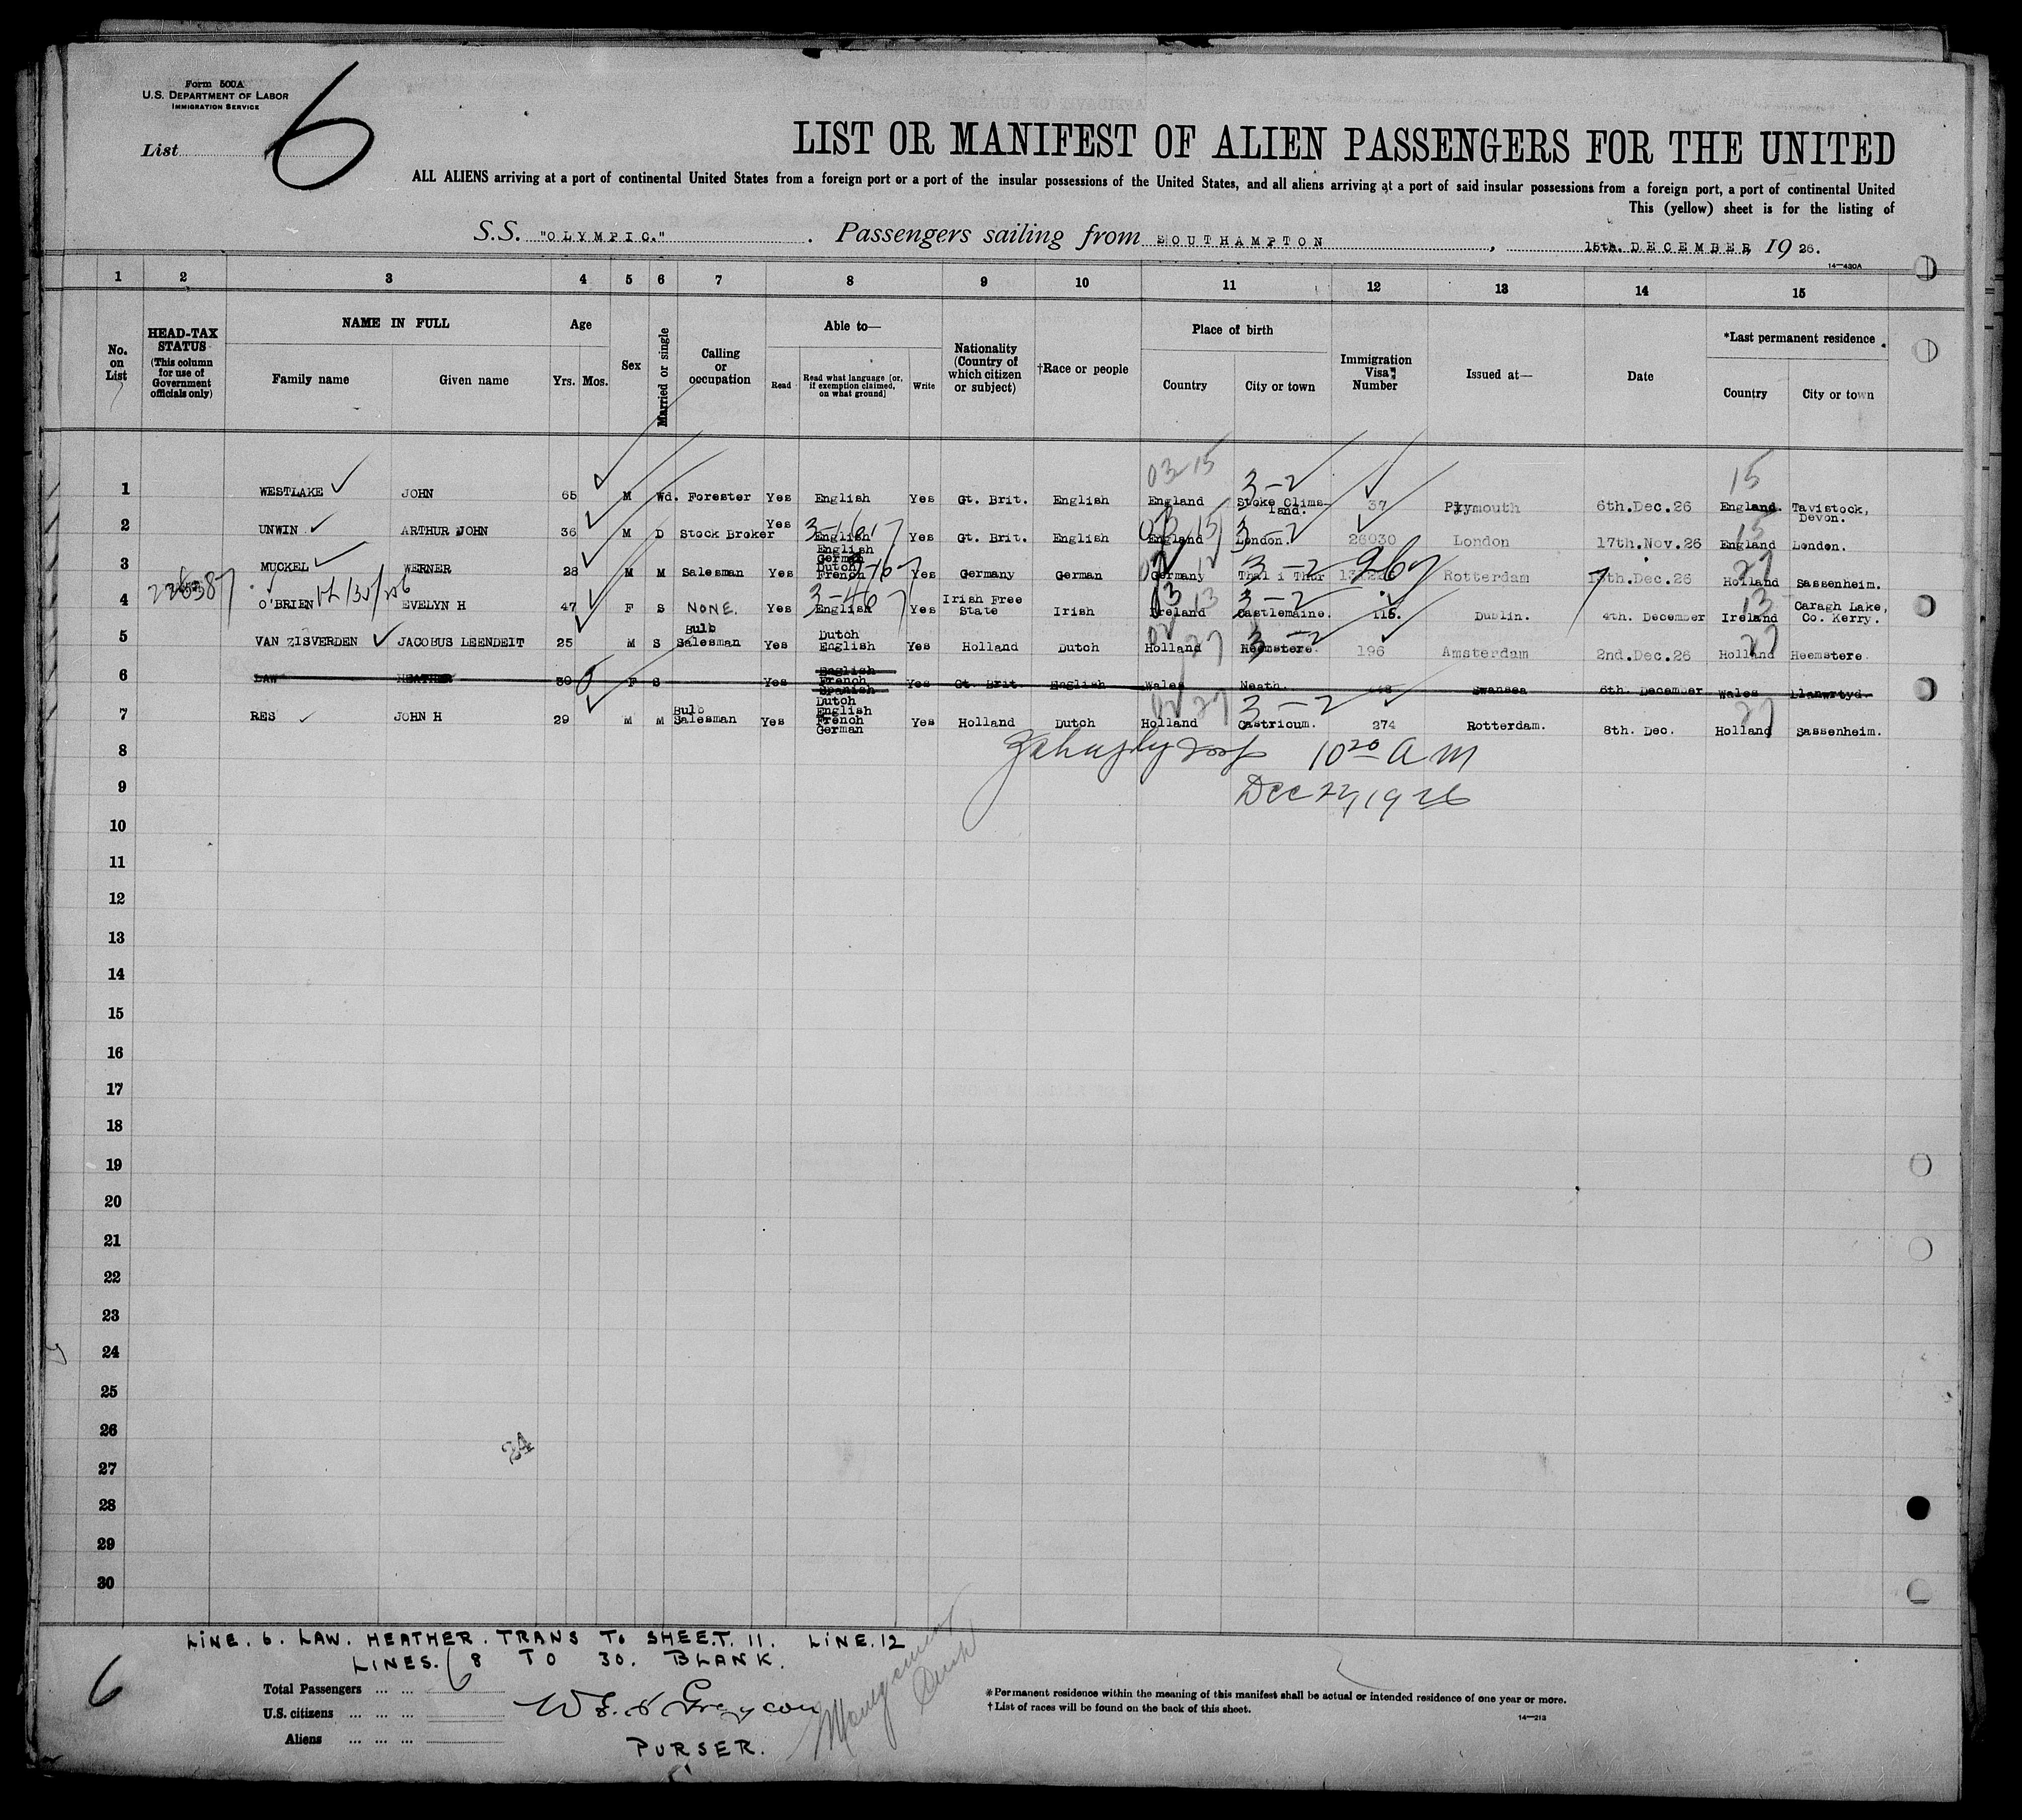 Form 500A
U.S. DEPARTMENT OF LABOR
IMMIGRATION SERVICE
List 6
LIST OR MANIFEST OF ALIEN PASSENGERS FOR THE UNITED
ALL ALIENS arriving at a port of continental United States from a foreign port or a port of the insular possessions of the United States, and all aliens arriving at a port of said insular possessions from a foreign port, a port of continental United
This (yellow) sheet is for the listing of
S.S. "OLYMPIC." Passengers sailing from SOUTHAMPTON, 15th. DECEMBER, 1926.
14-430A
1 2 3 4 5 6 7 8 9 10 11 12 13 14 15
No. on List
HEAD-TAX STATUS (This column for use of Government officials only)
NAME IN FULL
Family name Given name
Age
Yrs. Mos.
Sex
Married or single
Calling or occupation
Able to—
Read Read what language [or, if exemption claimed, on what ground] Write
Nationality (Country of which citizen or subject)
†Race or people
Place of birth
Country City or town
Immigration Visa Number
Issued at—
Date
*Last permanent residence
Country City or town
03 15 3-2 15
1 WESTLAKE JOHN 65 M Wd. Forester Yes English Yes Gt. Brit. English England Stoke Climsland. 37 Plymouth 6th.Dec.26 England Tavistock, Devon.
2 UNWIN ARTHUR JOHN 36 M D Stock Broker Yes English Yes Gt. Brit. English England London. 26030 London 17th.Nov.26 England London.
3 MUCKEL WERNER 28 M M Salesman Yes English German Dutch French Yes Germany German Germany Thal i Thur Rotterdam Dec.26 Holland Sassenheim.
4 O'BRIEN EVELYN H 47 F S NONE. Yes English Yes Irish Free State Irish Ireland Castlemaine. 115. Dublin. 4th. December Ireland Caragh Lake, Co. Kerry.
5 VAN ZISVERDEN JACOBUS LEENDEIT 25 M S Bulb Salesman Yes Dutch English Yes Holland Dutch Holland Heemstere. 196 Amsterdam 2nd.Dec.26 Holland Heemstere.
6 LAW HEATHER 30 F S Yes English French Spanish Yes Gt. Brit. English Wales Neath. Swansea 6th. December Wales Llanwrtyd.
7 RES JOHN H 29 M M Bulb Salesman Yes Dutch English French German Yes Holland Dutch Holland Castricum. 274 Rotterdam. 8th. Dec. Holland Sassenheim.
8
10 20 A M
9
Dec 22, 1926
10
11
12
13
14
15
16
17
18
19
20
21
22
23
24
25
26
24
27
28
29
30
LINE. 6. LAW. HEATHER. TRANS TO SHEET. 11. LINE. 12
LINES. 8 TO 30. BLANK.
6
Total Passengers ... ... 6
U.S. citizens ... ... ...
Aliens ... ... ...
PURSER.
*Permanent residence within the meaning of this manifest shall be actual or intended residence of one year or more.
†List of races will be found on the back of this sheet.
14—213